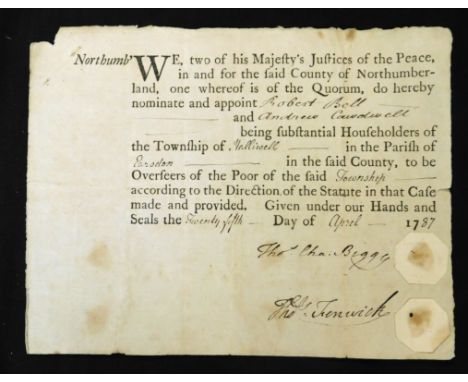 Northumb' WE, two of his Majesty's Justices of the Peace,
in and for the said County of Northumber-
land, one whereof is of the Quorum, do hereby
nominate and appoint Robert Bell
and Andrew
being substantial Householders of
the Township of Halliwell in the Parish of
Earsdon in the said County, to be
Overseers of the Poor of the said Township
according to the Direction of the Statute in that Case
made and provided. Given under our Hands and
Seals the Twenty fifth Day of April 1787
Thos. Cha. Bigge
Thos. Fenwick